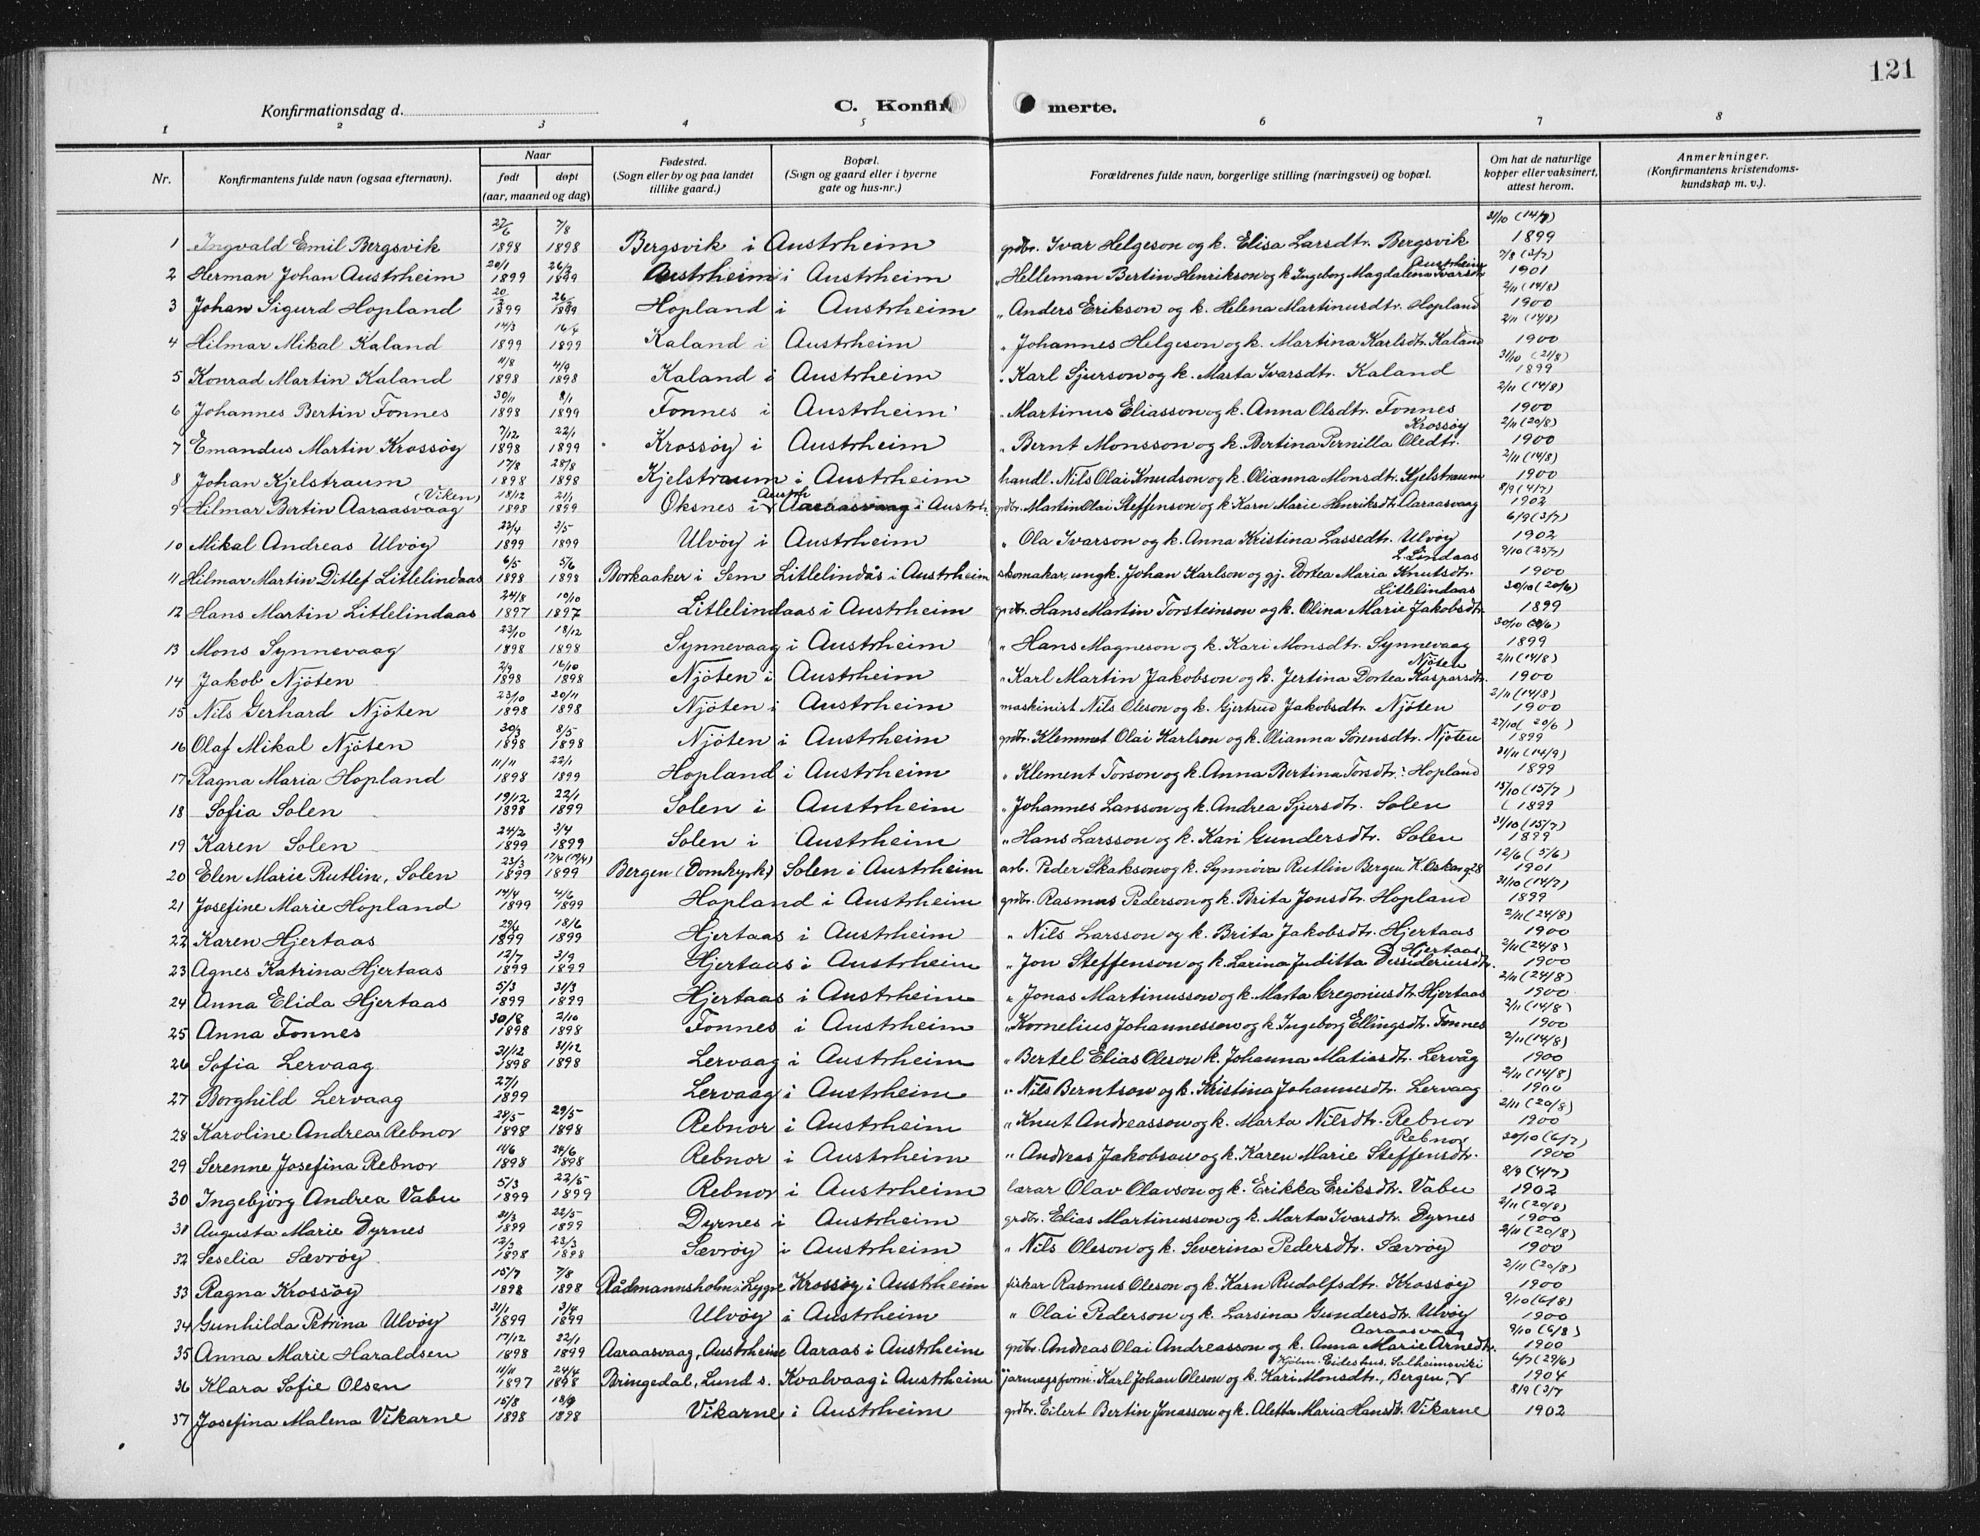 121
Konfirmationsdag d.
C. Konfir merte.
1 2 3 4 5 6 7 8
Nr. Konfirmantens fulde navn (ogsaa efternavn). Naar født døpt (aar, maaned og dag) Fødested. (Sogn eller by og paa landet tillike gaard.) Bopæl. (Sogn og gaard eller i byerne gate og hus-nr.) Forældrenes fulde navn, borgerlige stilling (næringsvei) og bopæl. Om hat de naturlige kopper eller vaksinert, attest herom. Anmerkninger. (Konfirmantens kristendomskundskap m. v.).
1 Ingvald Emil Bergsvik 27/6 1898 7/8 1898 Bergsvik i Austrheim grdbr. Ivar Helgeson og k. Elisa Larsdtr. Bergsvik 31/10 (14/7) 1899
2 Herman Johan Austrheim 20/1 1899 26/3 1899 Austrheim i Austrheim „ Helleman Bertin Henrikson og k. Ingeborg Magdalena Ivarsdtr. Austrheim 7/8 (3/7) 1901
3 Johan Sigurd Hopland 1899 1899 Hopland i Austrheim „ Anders Erikson og k. Helena Martinusdtr. Hopland 2/11 (14/8) 1900
4 Hilmar Mikal Kaland 14/3 1899 1899 Kaland i Austrheim „ Johannes Helgeson og k. Martina Karlsdtr. Kaland 2/11 (14/8) 1900
5 Konrad Martin Kaland 11/8 1898 4/9 1898 Kaland i Austrheim „ Karl Sjurson og k. Marta Ivarsdtr. Kaland 31/10 (21/8) 1899
6 Johannes Bertin Fonnes 30/11 1898 8/1 1899 Fonnes i Austrheim „ Martinus Eliasson og k. Anna Olsdtr. Fonnes 2/11 (14/8) 1900
7 Emandus Martin Krossøy 7/12 1898 22/1 1899 Krossøy i Austrheim „ Bernt Monsson og k. Bertina Pernilla Oledtr. Krossøy 2/11 (20/8) 1900
8 Johan Kjelstraum 17/8 1898 28/8 1898 Kjelstraum i Austrheim handl. Nils Olai Knudson og k. Olianna Monsdtr. Kjelstraum 2/11 (14/8) 1900
9 Hilmar Bertin Aaraasvaag (Viken) 18/12 1898 21/1 1899 Oksnes i Austrh Aaraasvaag i Austrh. grdbr. Martin Olai Steffenson og k. Karn Marie Henriksdtr. Aaraasvaag 8/9 (4/7) 1902
10 Mikal Andreas Ulvøy 22/4 1899 3/5 1899 Ulvøy i Austrheim „ Ola Ivarson og k. Anna Kristina Lassedtr. Ulvøy 6/9 (3/7) 1902
11 Hilmar Martin Ditlef Litlelindaas 6/5 1898 5/6 1898 Borkaaker i Sem Litlelindås i Austrheim skomakar, ungk. Johan Karlson og gj. Dortea Maria Knutsdtr. L. Lindaas 9/10 (25/7) 1900
12 Hans Martin Litlelindaas 24/8 1897 10/10 1897 Litlelindaas i Austrheim grdbr. Hans Martin Torsteinson og k. Olina Marie Jakobsdtr. Litlelindaas 30/10 (20/6) 1899
13 Mons Synnevaag 23/10 1898 18/12 1898 Synnevaag i Austrheim „ Hans Magneson og k. Kari Monsdtr. Synnevaag 30/10 (20/6) 1899
14 Jakob Njøten 2/9 1898 16/10 1898 Njøten i Austrheim „ Karl Martin Jakobson og k. Jertina Dortea Kasparsdtr. Njøten 2/11 (14/8) 1900
15 Nils Gerhard Njøten 23/10 1898 20/11 1898 Njøten i Austrheim maskinist Nils Oleson og k. Gjertrud Jakobsdtr. Njøten 2/11 (14/8) 1900
16 Olaf Mikal Njøten 30/3 1898 8/5 1898 Njøten i Austrheim grdbr. Klemmet Olai Karlson og k. Olianna Sørensdtr. Njøten 27/10 (20/6) 1899
17 Ragna Maria Hopland 11/11 1898 22/1 1899 Hopland i Austrheim „ Klement Torson og k. Anna Bertina Torsdtr. Hopland 31/11 (14/9) 1899
18 Sofia Solen 19/12 1898 22/1 1899 Solen i Austrheim „ Johannes Larsson og k. Andrea Sjursdtr. Solen 13/10 (15/7) 1899
19 Karen Solen 24/2 1899 3/4 1899 Solen i Austrheim „ Hans Larsson og k. Kari Gundersdtr. Solen 31/10 (15/7) 1899
20 Elen Marie Rutlin, Solen 23/3 1899 17/4 (19/4) 1899 Bergen (Domkyrk) Solen i Austrheim arb. Peder Skakson og k. Synnøva Rutlin Bergen K. Oskarsg 28 12/6 (5/6) 1901
21 Josefine Marie Hopland 14/4 1899 4/6 1899 Hopland i Austrheim grdbr. Rasmus Pederson og k. Brita Jonsdtr. Hopland 31/10 (14/7) 1899
22 Karen Hjertaas 1899 18/6 1899 Hjertaas i Austrheim „ Nils Larsson og k. Brita Jakobsdtr. Hjertaas 2/11 (24/8) 1900
23 Agnes Katrina Hjertaas 12/7 1899 3/9 1899 Hjertaas i Austrheim „ Jon Steffenson og k. Larina Juditta Dessideriusdtr. Hjertaas 2/11 (24/8) 1900
24 Anna Elida Hjertaas 5/3 1899 31/3 1899 Hjertaas i Austrheim „ Jonas Martinusson og k. Marta Gregoriusdtr. Hjertaas 2/11 (24/8) 1900
25 Anna Fonnes 30/8 1898 2/10 1898 Fonnes i Austrheim „ Kornelius Johannesson og k. Ingeborg Ellingsdtr. Fonnes 2/11 (14/8) 1900
26 Sofia Lervaag 31/12 1898 31/12 1898 Lervaag i Austrheim „ Bertel Elias Oleson k. Johanna Matiasdtr. Lervåg 2/11 (14/8) 1900
27 Borghild Lervaag 27/1 1899 Lervaag i Austrheim „ Nils Berntson og k. Kristina Johannesdtr. Lervaag 2/11 (14/8) 1900
28 Karoline Andrea Rebnor 1898 29/5 1898 Rebnor i Austrheim „ Knut Andreasson og k. Marta Nilsdtr. Rebnor 2/11 (20/8) 1900
29 Serenne Josefina Rebnor 11/6 1898 26/6 1898 Rebnor i Austrheim „ Andreas Jakobson og k. Karen Marie Steffensdtr. Rebnor 30/10 (6/7) 1900
30 Ingebjørg Andrea Vabu 5/3 1899 22/5 1899 Rebnor i Austrheim lærar Olav Olavson og k. Erikka Eriksdtr. Vabu 8/9 (4/7) 1902
31 Augusta Marie Dyrnes 31/3 1899 22/5 1899 Dyrnes i Austrheim grdbr. Elias Martinusson og k. Marta Ivarsdtr. Dyrnes 2/11 (20/8) 1900
32 Seselia Sævrøy 12/3 1898 23/3 1898 Sævrøy i Austrheim „ Nils Oleson og k. Severina Pedersdtr. Sævrøy 2/11 (20/8) 1900
33 Ragna Krossøy 15/7 1898 7/8 1898 Rådmannsholm i Lygre Krossøy i Austrheim fiskar Rasmus Oleson og k. Karn Rudolfsdtr. Krossøy 2/11 (20/8) 1900
34 Gunhilda Petrina Ulvøy 31/1 1899 3/4 1899 Ulvøy i Austrheim „ Olai Pederson og k. Larsina Gundersdtr. Ulvøy 9/10 (6/8) 1900
35 Anna Marie Haraldsen 17/12 1898 22/1 1899 Aaraasvaag, Austrheim Aaraas i Austrheim grdbr. Andreas Olai Andreasson og k. Anna Marie Arnedtr. Aaraasvaag 9/10 (6/8) 1900
36 Klara Sofie Olsen 11/11 1897 24/4 1898 Bringedal, Lund s. Kvalvaag i Austrheim jarnvegsform. Karl Johan Oleson og k. Kari Monsdtr., Bergen, Eideshus, Solheimsviki 6/7 (29/6) 1904
37 Josefina Malena Vikarne 15/8 1898 18/9 1898 Vikarne i Austrheim grdbr. Eilert Bertin Jonasson og k. Aletta Maria Hansdtr. Vikarne 8/9 (3/7 1902